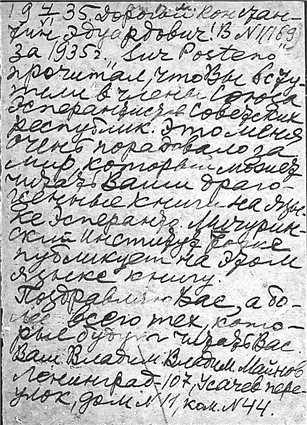 19 7/V 35. Дорогой Констан-
тин Эдуардович! В N 11(69)
за 1935 г. "Sur Posteno"
прочитал, что Вы всту-
пили в члены Союза
Эсперантистов Советских
республик. Это меня
очень порадовало за
мир, который может
читать Ваши драго-
ценные книги на язы-
ке Эсперанто. Мичурин-
ский Институт также
публикует на этом
языке книгу.
Поздравляю Вас, а бо-
лее всего тех, кото-
рые будут читать Вас.
Ваш Владим. Владим. Майнов
Ленинград-107, Усачев пере
улок, дом N 11, ком. N 44.